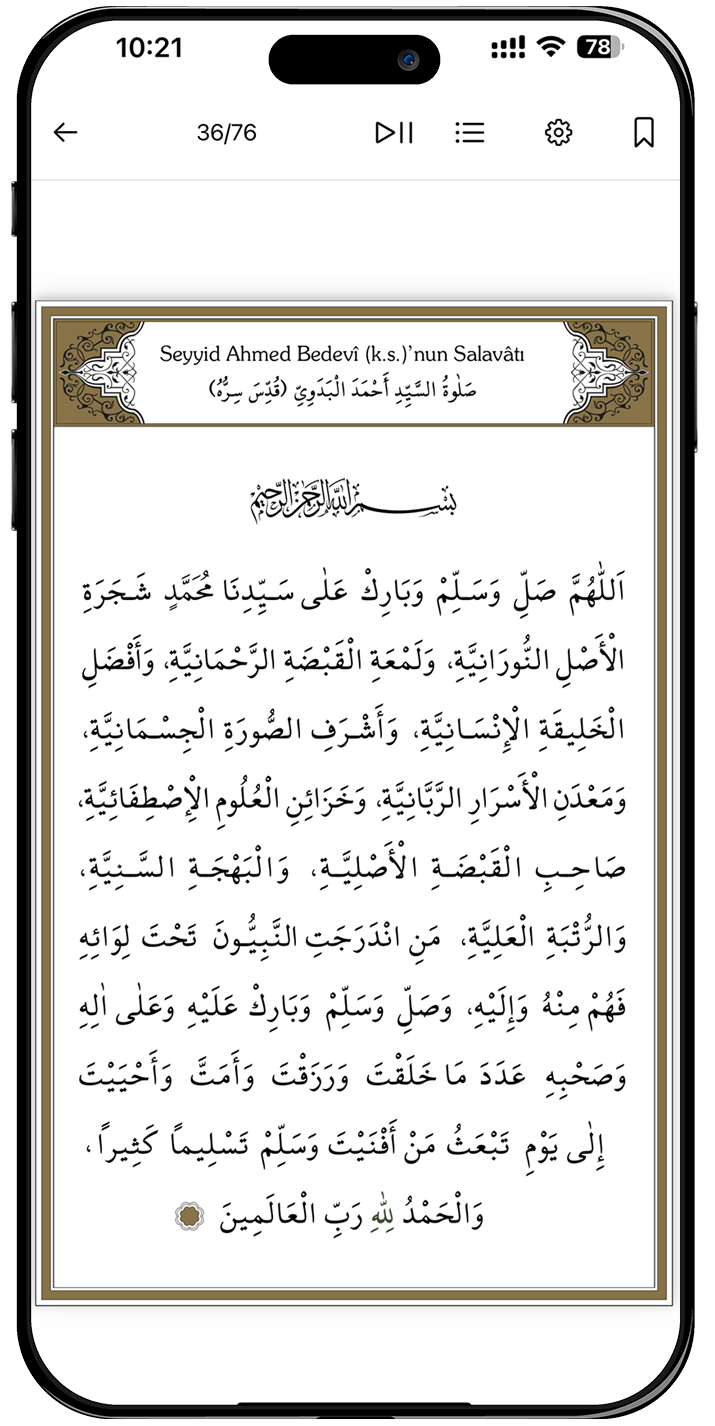 10:21
78
36/76
Seyyid Ahmed Bedevî (k.s.)’nun Salavâtı
صَلٰوةُ السَّيِّدِ أَحْمَدَ الْبَدَوِيِّ (قُدِّسَ سِرُّهُ)
بِسْمِ اللّٰهِ الرَّحْمٰنِ الرَّحِيْمِ
اَللّٰهُمَّ صَلِّ وَسَلِّمْ وَبَارِكْ عَلٰى سَيِّدِنَا مُحَمَّدٍ شَجَرَةِ
الْأَصْلِ النُّورَانِيَّةِ، وَلَمْعَةِ الْقَبْضَةِ الرَّحْمَانِيَّةِ، وَأَفْضَلِ
الْخَلِيقَةِ الْإِنْسَانِيَّةِ، وَأَشْرَفِ الصُّورَةِ الْجِسْمَانِيَّةِ،
وَمَعْدَنِ الْأَسْرَارِ الرَّبَّانِيَّةِ، وَخَزَائِنِ الْعُلُومِ الْإِصْطِفَائِيَّةِ،
صَاحِبِ الْقَبْضَةِ الْأَصْلِيَّةِ، وَالْبَهْجَةِ السَّنِيَّةِ،
وَالرُّتْبَةِ الْعَلِيَّةِ، مَنِ انْدَرَجَتِ النَّبِيُّونَ تَحْتَ لِوَائِهِ
فَهُمْ مِنْهُ وَإِلَيْهِ، وَصَلِّ وَسَلِّمْ وَبَارِكْ عَلَيْهِ وَعَلٰى اٰلِهِ
وَصَحْبِهِ عَدَدَ مَا خَلَقْتَ وَرَزَقْتَ وَأَمَتَّ وَأَحْيَيْتَ
إِلٰى يَوْمِ تَبْعَثُ مَنْ أَفْنَيْتَ وَسَلِّمْ تَسْلِيماً كَثِيراً،
وَالْحَمْدُ لِلّٰهِ رَبِّ الْعَالَمِينَ